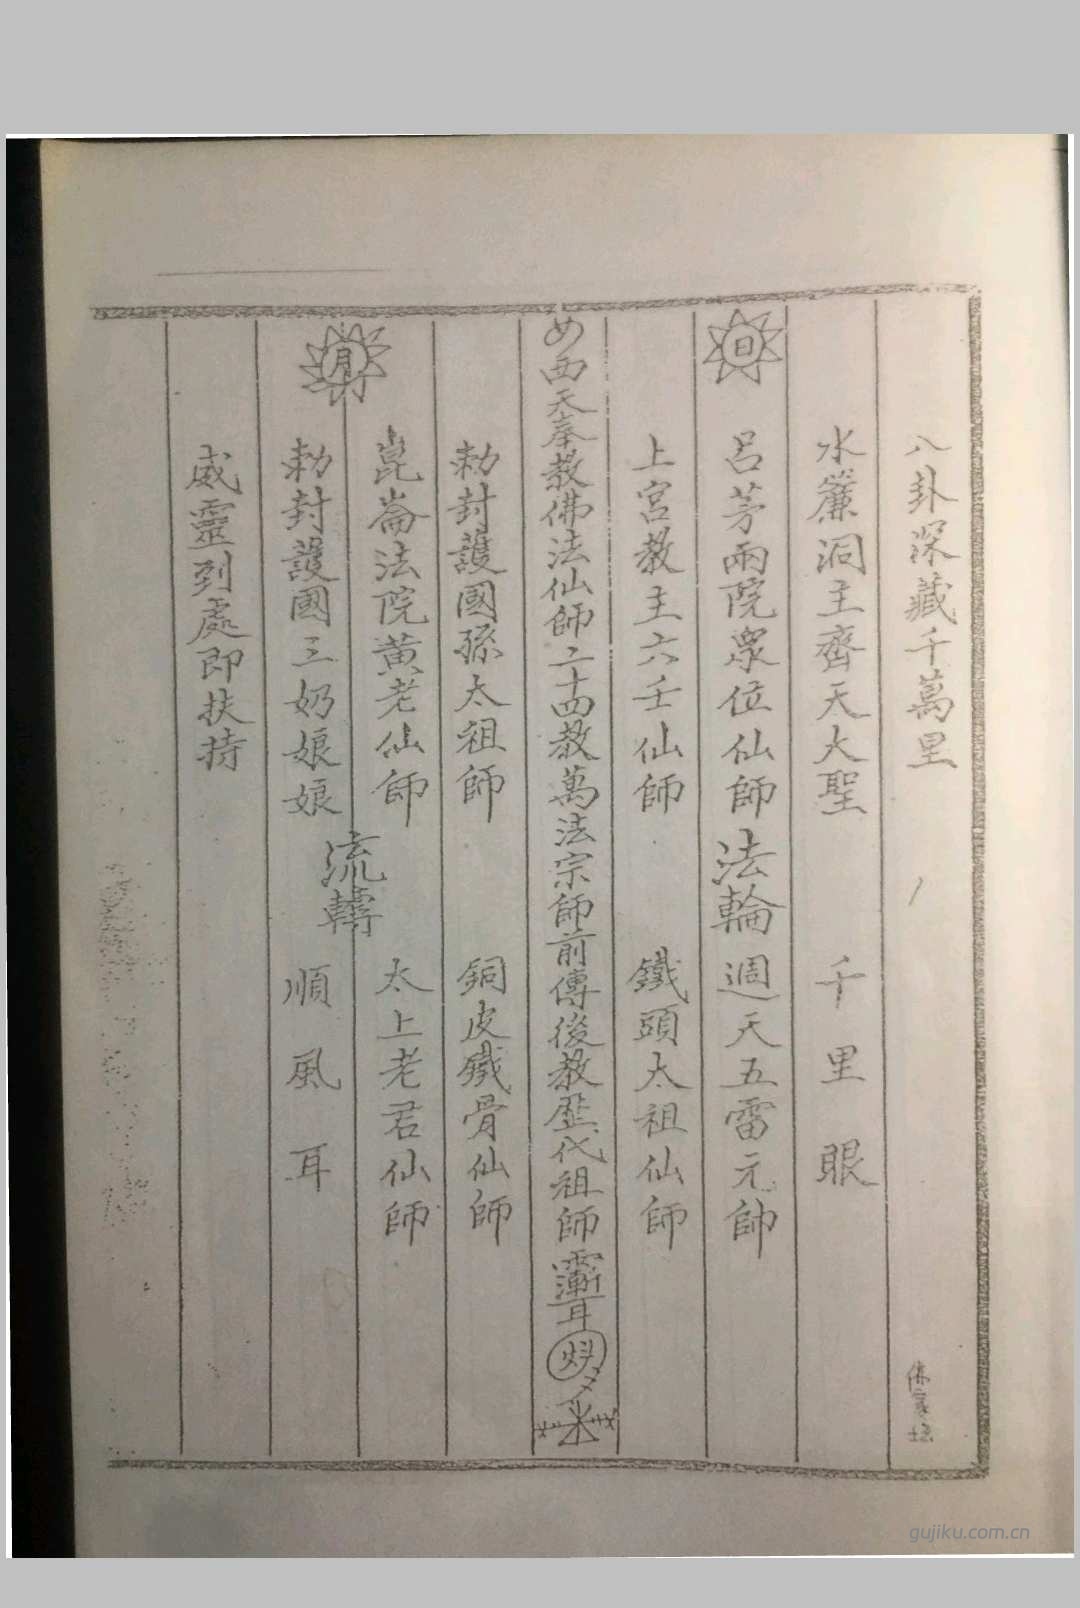 八卦深藏千萬里
佛家壇
水簾洞主齊天大聖 千里眼
日
呂茅兩院眾位仙師 週天五雷元帥
法輪
上宮教主六壬仙師 鐵頭太祖仙師
西天奉教佛法仙師二十四教萬法宗師前傳後教歷代祖師
勅封護國孫太祖師 銅皮鐵骨仙師
崑崙法院黃老仙師 太上老君仙師
月
流轉
勅封護國三奶娘娘 順風耳
威靈到處即扶持
gujiku.com.cn